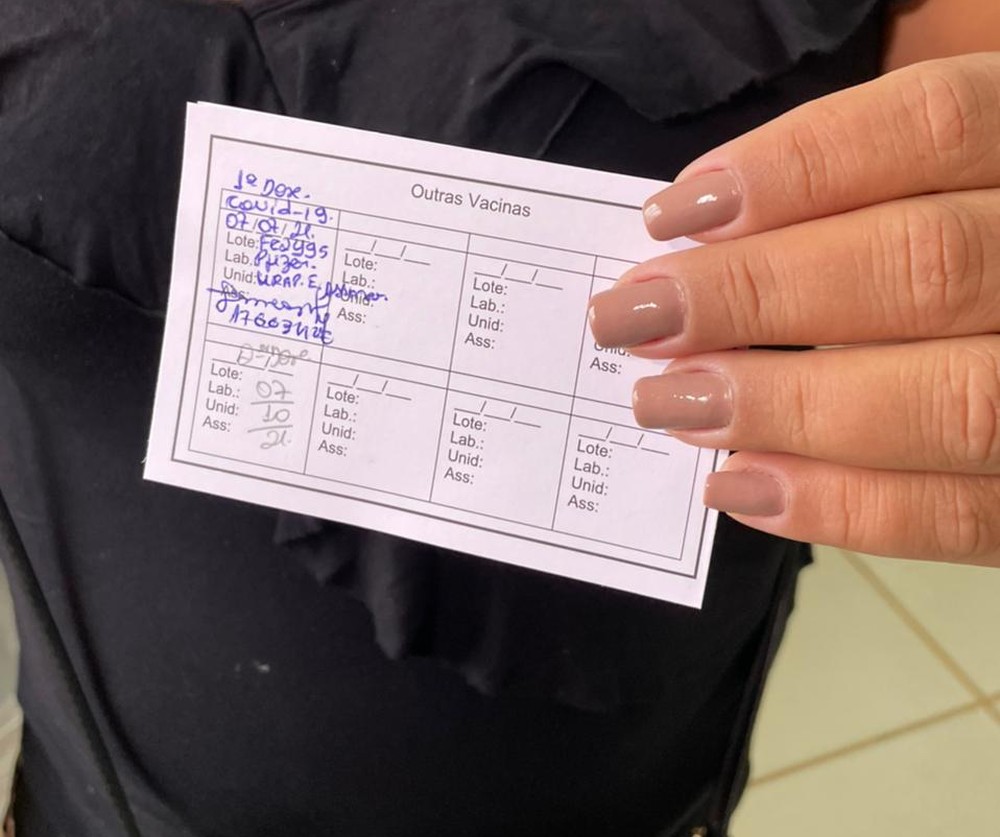 Outras Vacinas
1ª Dose.
Covid-19.
07/07/21.
Lote:
Lab. Pfizer.
Unid: URAP.E.
__/__/__
Lote:
Lab.:
Unid:
Ass:
__/__/__
Lote:
Lab.:
Unid:
Ass:
Unid:
Ass:
2ª Dose
Lote:
Lab.: 07
Unid: 10
Ass: 21.
__/__/__
Lote:
Lab.:
Unid:
Ass:
__/__/__
Lote:
Lab.:
Unid:
Ass:
__/__/__
Lote:
Lab.:
Unid:
Ass: